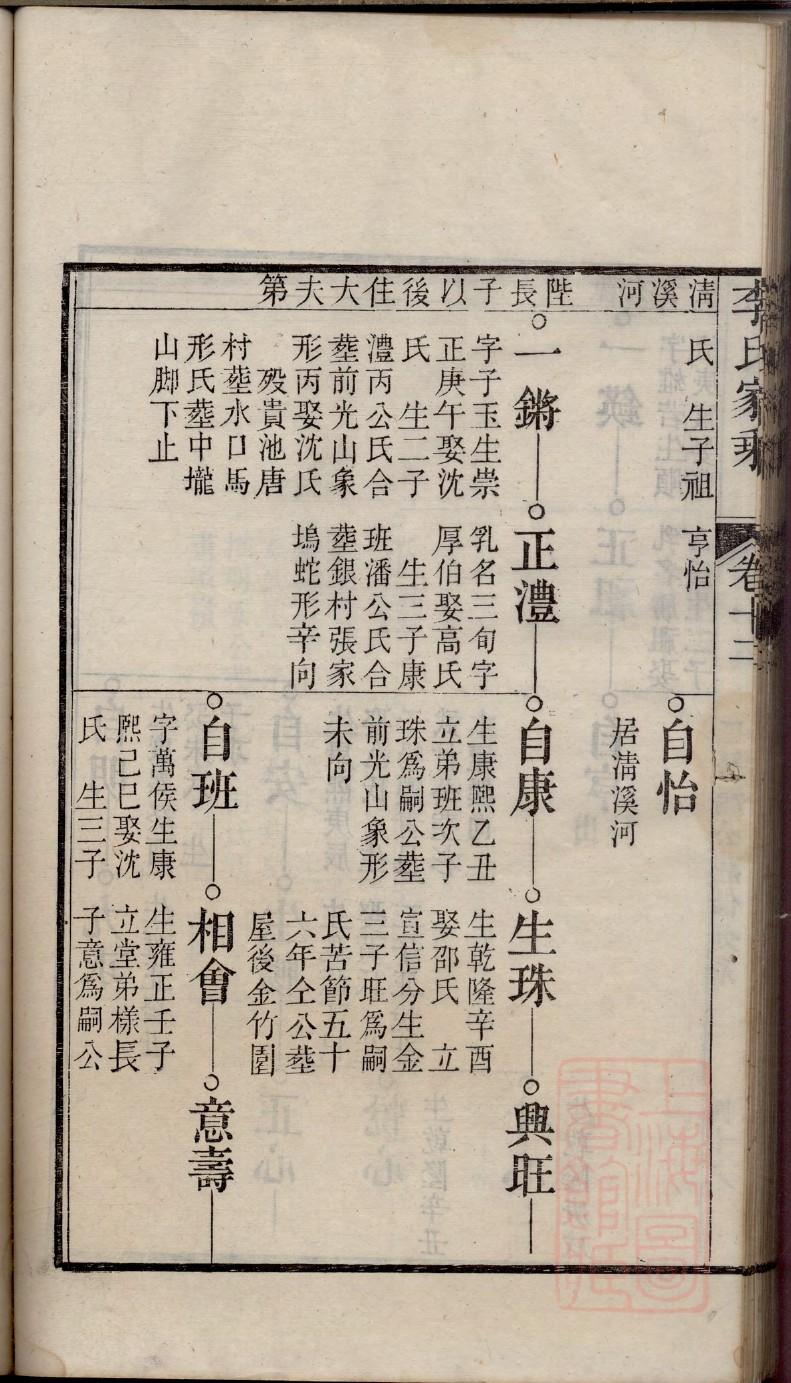 李氏家乘 卷十二
清溪河
氏　生子祖
亨怡
自怡
居清溪河
陛長子以後住大夫第
一鏘
字子玉生崇
正庚午娶沈
氏　生二子
澧丙公氏合
塟前光山象
形丙娶沈氏
殁貴池唐
村塟水口馬
形氏塟中壠
山脚下止
正澧
乳名三旬字
厚伯娶高氏
生三子康
班潘公氏合
塟銀村張家
塢蛇形辛向
自康
生康熙乙丑
立弟班次子
珠爲嗣公塟
前光山象形
未向
生珠
生乾隆辛酉
娶邵氏　立
宣信分生金
三子旺爲嗣
氏苦節五十
六年仝公塟
屋後金竹園
興旺
自班
字萬侯生康
熙己巳娶沈
氏　生三子
相會
生雍正壬子
立堂弟樣長
子意爲嗣公
意壽
上海圖書館藏